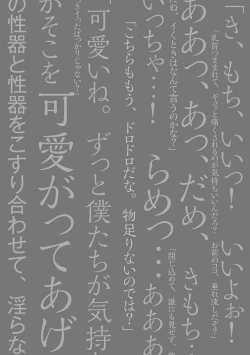 「き、もち、いいっ！　いいよぉ！
「乳首つままれて、ぎゅっと痛くされるのが気持ちいいんだろ？　お前のココ、垂れ流しだぞ？」
ああっ、あっ、だめ、きもち
ね、イくときはなんて言うのかな？」
「閉じ込めて、誰にも見せず、
いっちゃ…！　らめっ…あああ
「こちらももう、ドロドロだな。物足りないのでは？」
「可愛いね。ずっと僕たちが気持
ばっかりじゃない？」
がそこを可愛がってあげ
の性器と性器をこすり合わせて、淫らな